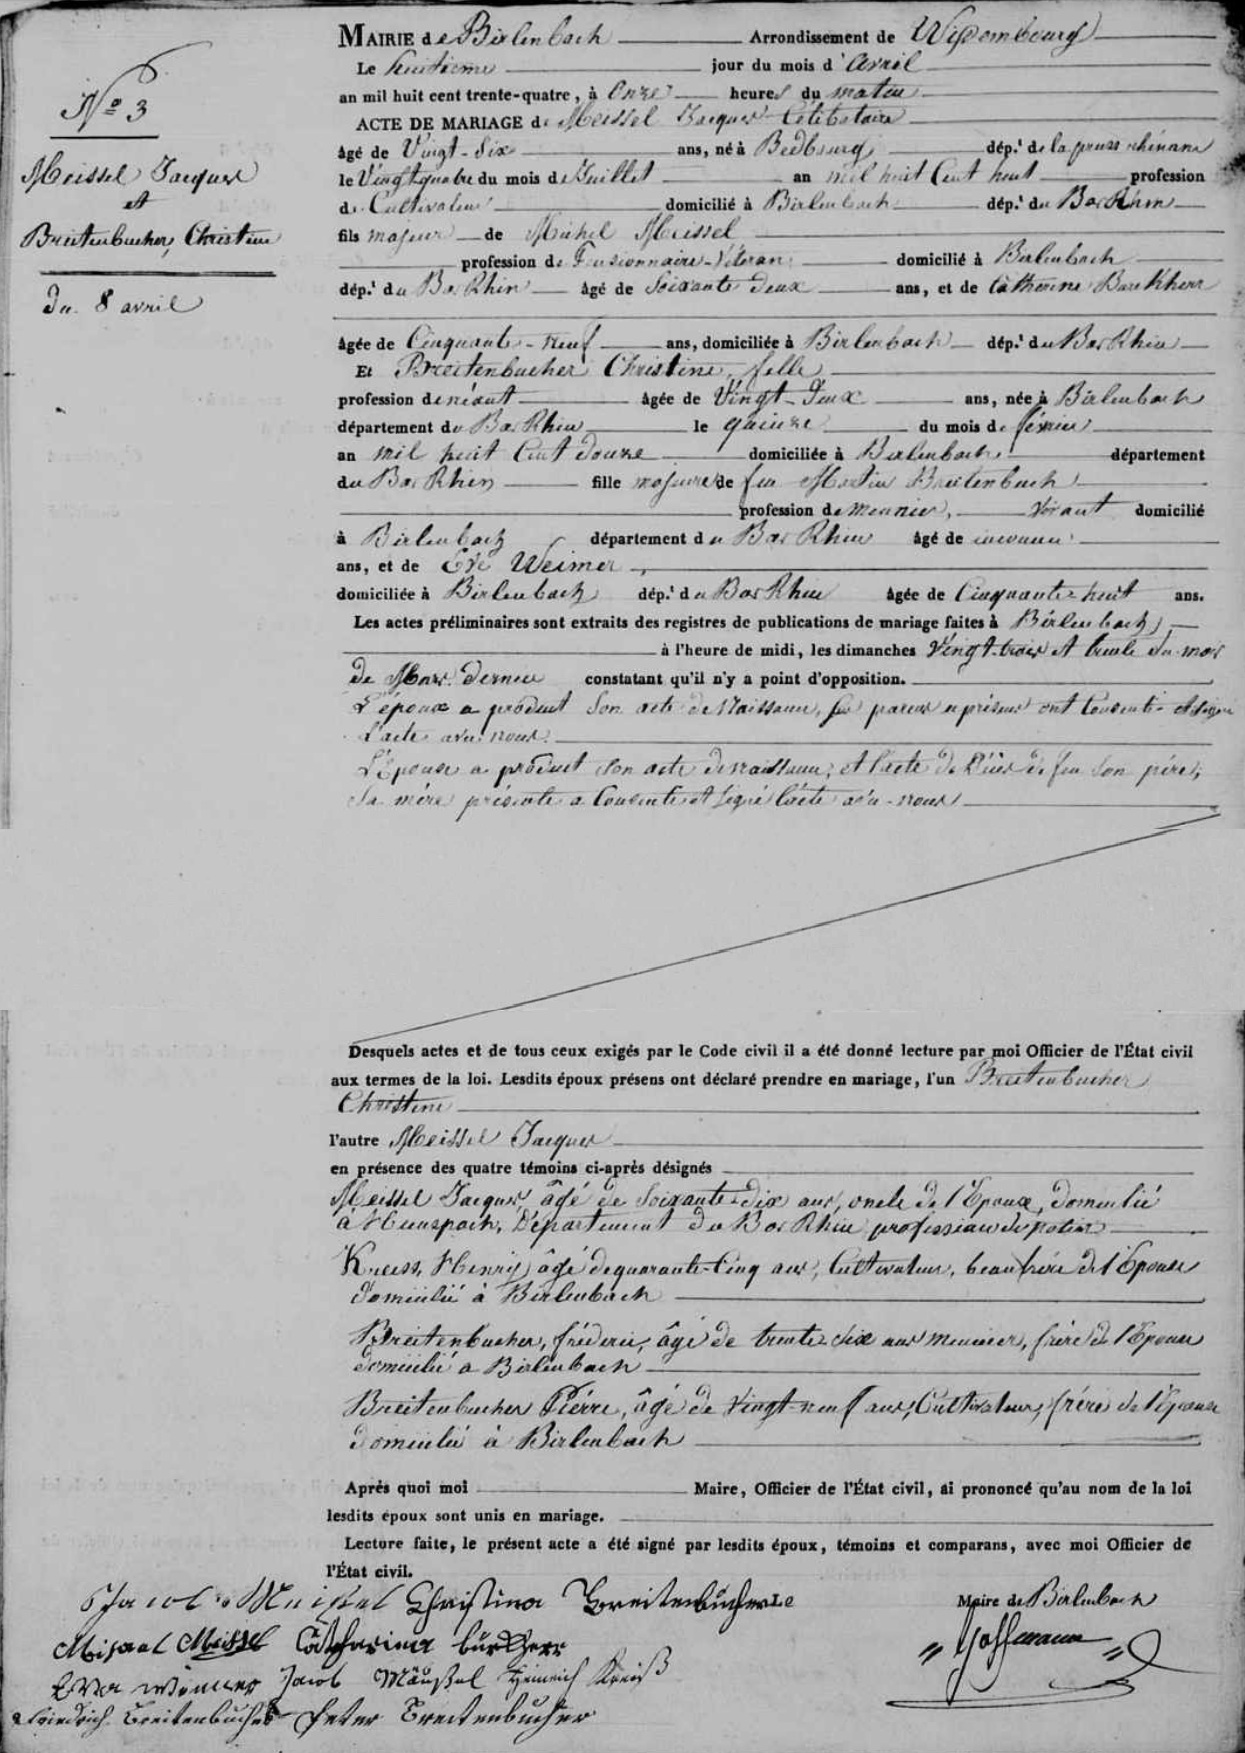 Nº 3
Meissel Jacques
et
Breitenbucher, Christine
du 8 avril
MAIRIE de Birlenbach Arrondissement de Wissembourg
Le huitième jour du mois d'Avril
an mil huit cent trente-quatre, à Onze heures du matin
ACTE DE MARIAGE de Meissel Jacques Célibataire
âgé de Vingt-Six ans, né à Bedbourg dép.t de la prusse rhénane
le Vingt quatre du mois de Juillet an mil huit Cent huit profession
de Cultivateur domicilié à Birlenbach dép.t du Bas Rhin
fils majeur de Michel Meissel
profession de Pensionnaire-Véteran domicilié à Birlenbach
dép.t du Bas Rhin âgé de Soixante deux ans, et de Catherine Burckherr
âgée de Cinquante-neuf ans, domiciliée à Birlenbach dép.t du Bas Rhin
Et Breitenbucher Christine, fille
profession de néant âgée de Vingt-Deux ans, née à Birlenbach
département du Bas Rhin le quinze du mois de février
an mil huit Cent douze domiciliée à Birlenbach département
du Bas Rhin fille majeure de feu Martin Breitenbuch
profession de meunier, vivant domicilié
à Birlenbach département du Bas Rhin âgé de inconnu
ans, et de Eve Weimer,
domiciliée à Birlenbach dép.t du Bas Rhin âgée de Cinquante-huit ans.
Les actes préliminaires sont extraits des registres de publications de mariage faites à Birlenbach,
à l'heure de midi, les dimanches Vingt-trois et trente du mois
de Mars dernier constatant qu'il n'y a point d'opposition.
L'époux a produit Son acte de Naissance, ses parens présens ont Consenti et signé
l'acte avec nous.
L'Epouse a produit son acte de naissance, et l'acte de Décès de feu Son père,
Sa mère présente a Consenti et Signé l'acte avec nous
Desquels actes et de tous ceux exigés par le Code civil il a été donné lecture par moi Officier de l'État civil
aux termes de la loi. Lesdits époux présens ont déclaré prendre en mariage, l'un Breitenbucher
Christine
l'autre Meissel Jacques
en présence des quatre témoins ci-après désignés
Meissel Jacques, âgé de Soixante-dix ans, oncle de l'Epoux, domicilié
à Hunspach, Département du Bas Rhin profession de potier
Kreiss, Henry, âgé de quarante-Cinq ans, Cultivateur, beau frère de l'Epouse
domicilié à Birlenbach
Breitenbucher, fréderic, âgé de trente-Six ans meunier, frère de l'Epouse
domicilié a Birlenbach
Breitenbucher Piérre, âgé de Vingt-neuf ans, Cultivateur, frère de l'Epouse
domicilié à Birlenbach
Après quoi moi Maire, Officier de l'État civil, ai prononcé qu'au nom de la loi
lesdits époux sont unis en mariage.
Lecture faite, le présent acte a été signé par lesdits époux, témoins et comparans, avec moi Officier de
l'État civil.
Jacob Meissel Christina Breitenbücher Le Maire de Birlenbach
Michael Meissel Catharina Bürckherr Hoffmann
Eva Weimer Jacob Mäußel Heinrich Kreiß
Friedrich Breitenbücher Peter Breitenbücher